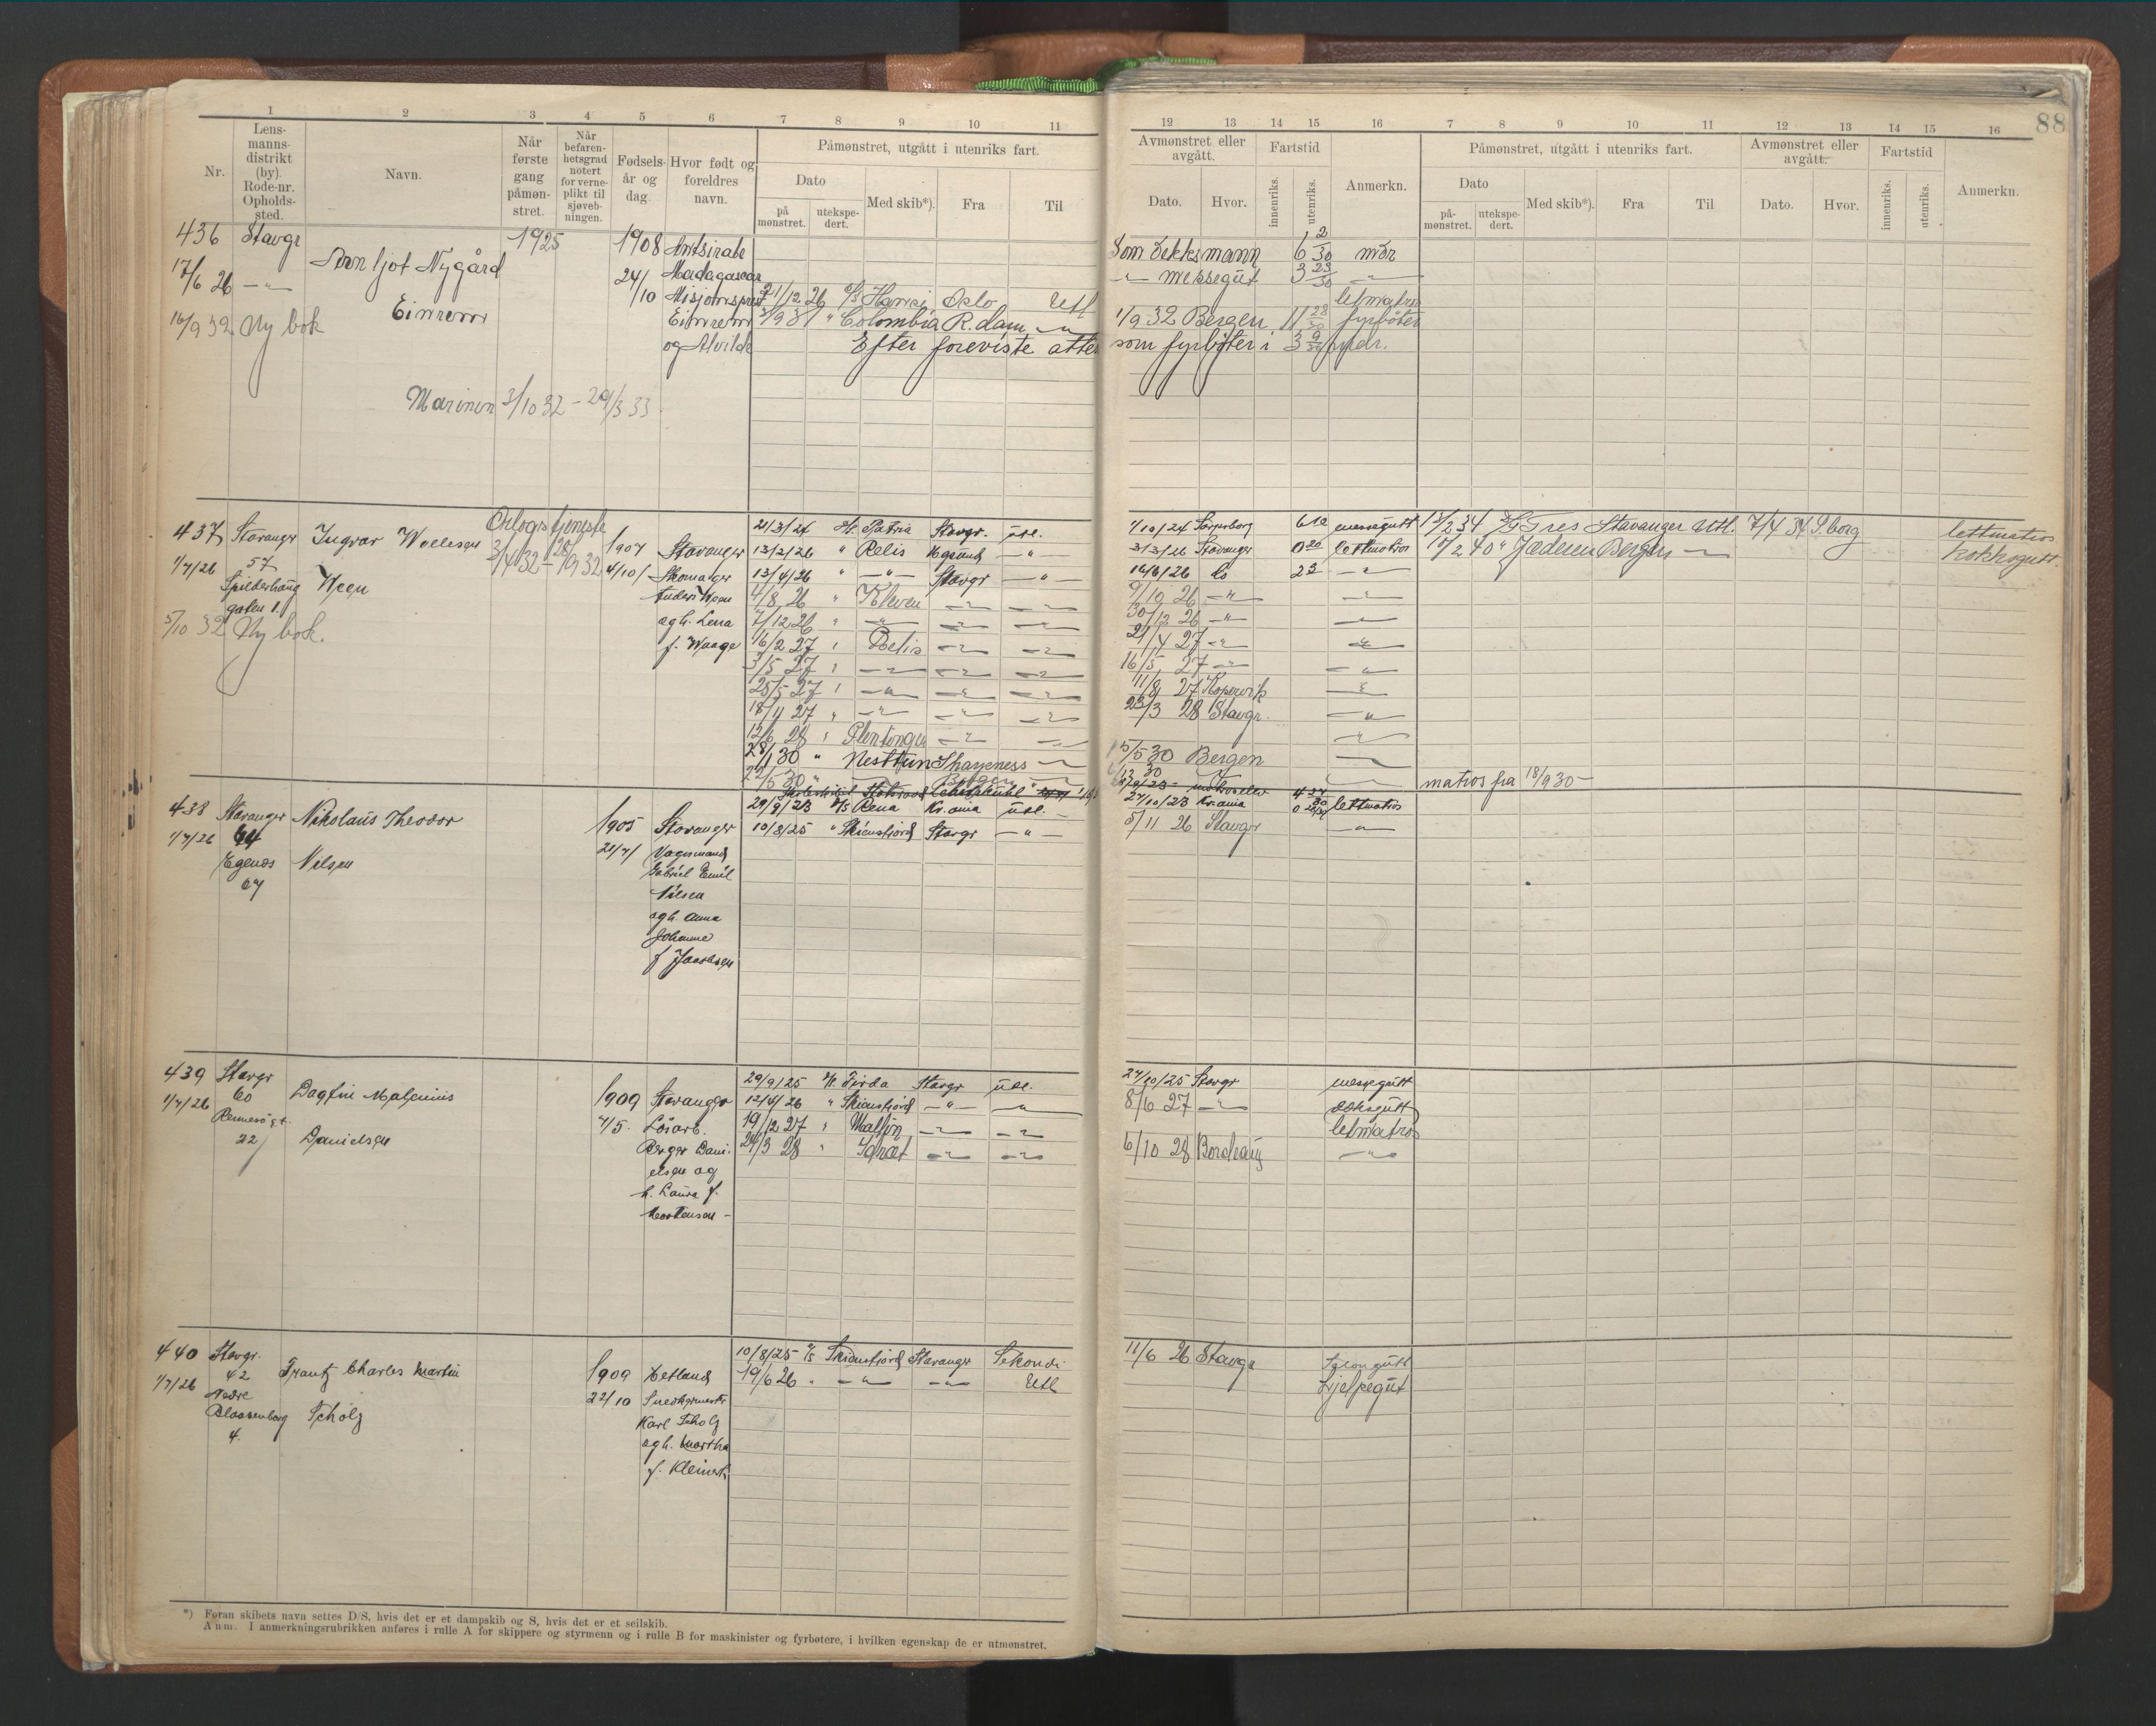 88
1 2 3 4 5 6 7 8 9 10 11
Nr.
Lens-
manns-
distrikt
(by).
Rode-nr.
Opholds-
sted.
Navn.
Når
første
gang
påmøn-
stret.
Når
befaren-
hetsgrad
notert
for verne-
plikt til
sjøveb-
ningen.
Fødsels-
år og
dag.
Hvor født og
foreldres
navn.
Påmønstret, utgått i utenriks fart.
Dato
på
mønstret.
utekspe-
dert.
Med skib*).
Fra
Til
12 13 14 15 16 7 8 9 10 11 12 13 14 15 16
Avmønstret eller
avgått.
Dato.
Hvor.
Fartstid
innenriks.
utenriks.
Anmerkn.
Påmønstret, utgått i utenriks fart.
Dato
på-
mønstret.
utekspe-
dert.
Med skib*).
Fra
Til
Avmønstret eller
avgått.
Dato.
Hvor.
Fartstid
innenriks.
utenriks.
Anmerkn.
436 Stavgr 1925 1908 Antsirabe
17/6 26 Nygård 24/10 Madagascar
Misjonsprest
Einrem
Einrem
og Alvilde
16/9 32 Ny bok
21/12 26 Oslo Utl
Colombia R.dam
Efter foreviste atter
som fyrbøter i
Som dekksmann 6 2/30 mdr
messegut 3 23/30
letmatros
1/9 32 Bergen 11 28/30 fyrbøter
Marinen 3/10 32 – 29/3 33
437 Stavanger Ingvar Wollesen 1907 Stavanger
1/7/26 57 4/10 Skomager
Spilderhaug Ween Anders Ween
gaten 1. ogh. Lena
f. Waage
5/10 32 Ny bok.
Orlogstjeneste
3/4 32 – 28/9 32
21/3/24 Patria Stavgr. utl.
13/2/26 " Relis
13/4/26 " Stavgr
4/8 26 " Kleven
7/12 26 "
16/2 27 " Relis
3/5 27 "
25/5 27 "
18/11 27 "
12/6 28 "
28/1 30 " Nesttun
22/5 30 " Bergen
1/10/24 Sarpsborg messegutt
3/3/26 Stavanger 0 20 lettmatros
16/6/26 do
9/10 26
30/12 26
21/4 27
16/5 27
11/8 27 Kopervik
23/3 28 Stavgr.
15/5 30 Bergen
matros fra 18/9 30
13/2 34 Tres Stavanger Utl. 7/4 34 S.borg lettmatros
10/2 40 " Jæderen Bergen kokksgutt.
438 Stavanger Nikolaus Theodor 1905 Stavanger
1/7/26 64 21/7 Vognmand
Egenes Nilsen Gabriel Emil
67 Nilsen
ogh. Anna
Johanne
f Jacobsen
29/9/23 D/S Rena Kr.ania utl.
10/8/25 " Skiensfjord Stavgr
27/10/23 Kr.ania lettmatros
5/11 26 Stavgr
439 Stavgr Dagfin Maljenius 1909 Stavanger
1/7/26 60 4/5 Løsarb.
Rennesøgt. Danielsen Berger Dani-
22 elsen og
h. Laura f.
Mortensen
29/9/25 Firda Stavgr utl.
12/4/26 " Skiensfjord
19/12 27 "
24/3 28 "
24/10/25 Stavgr messegutt
8/6 27 dæksgutt
letmatros
6/10 28 Bordeaux
440 Stavgr. Frantz Charles Martin 1909 Hetland
1/7/26 42 22/10 Snedkermester
Nedre Scholz Karl Scholz
Blaasenborg ogh. Martha
4. f. Kleinert
10/8/25 D/S Skiensfjord Stavanger Sekondi
19/6 26 Utl
11/6 26 Stavgr Salongutt
Hjelpegut
*) Foran skibets navn settes D/S, hvis det er et dampskib og S, hvis det er et seilskib.
Anm. I anmerkningsrubrikken anføres i rulle A for skippere og styrmenn og i rulle B for maskinister og fyrbøtere, i hvilken egenskap de er utmønstret.